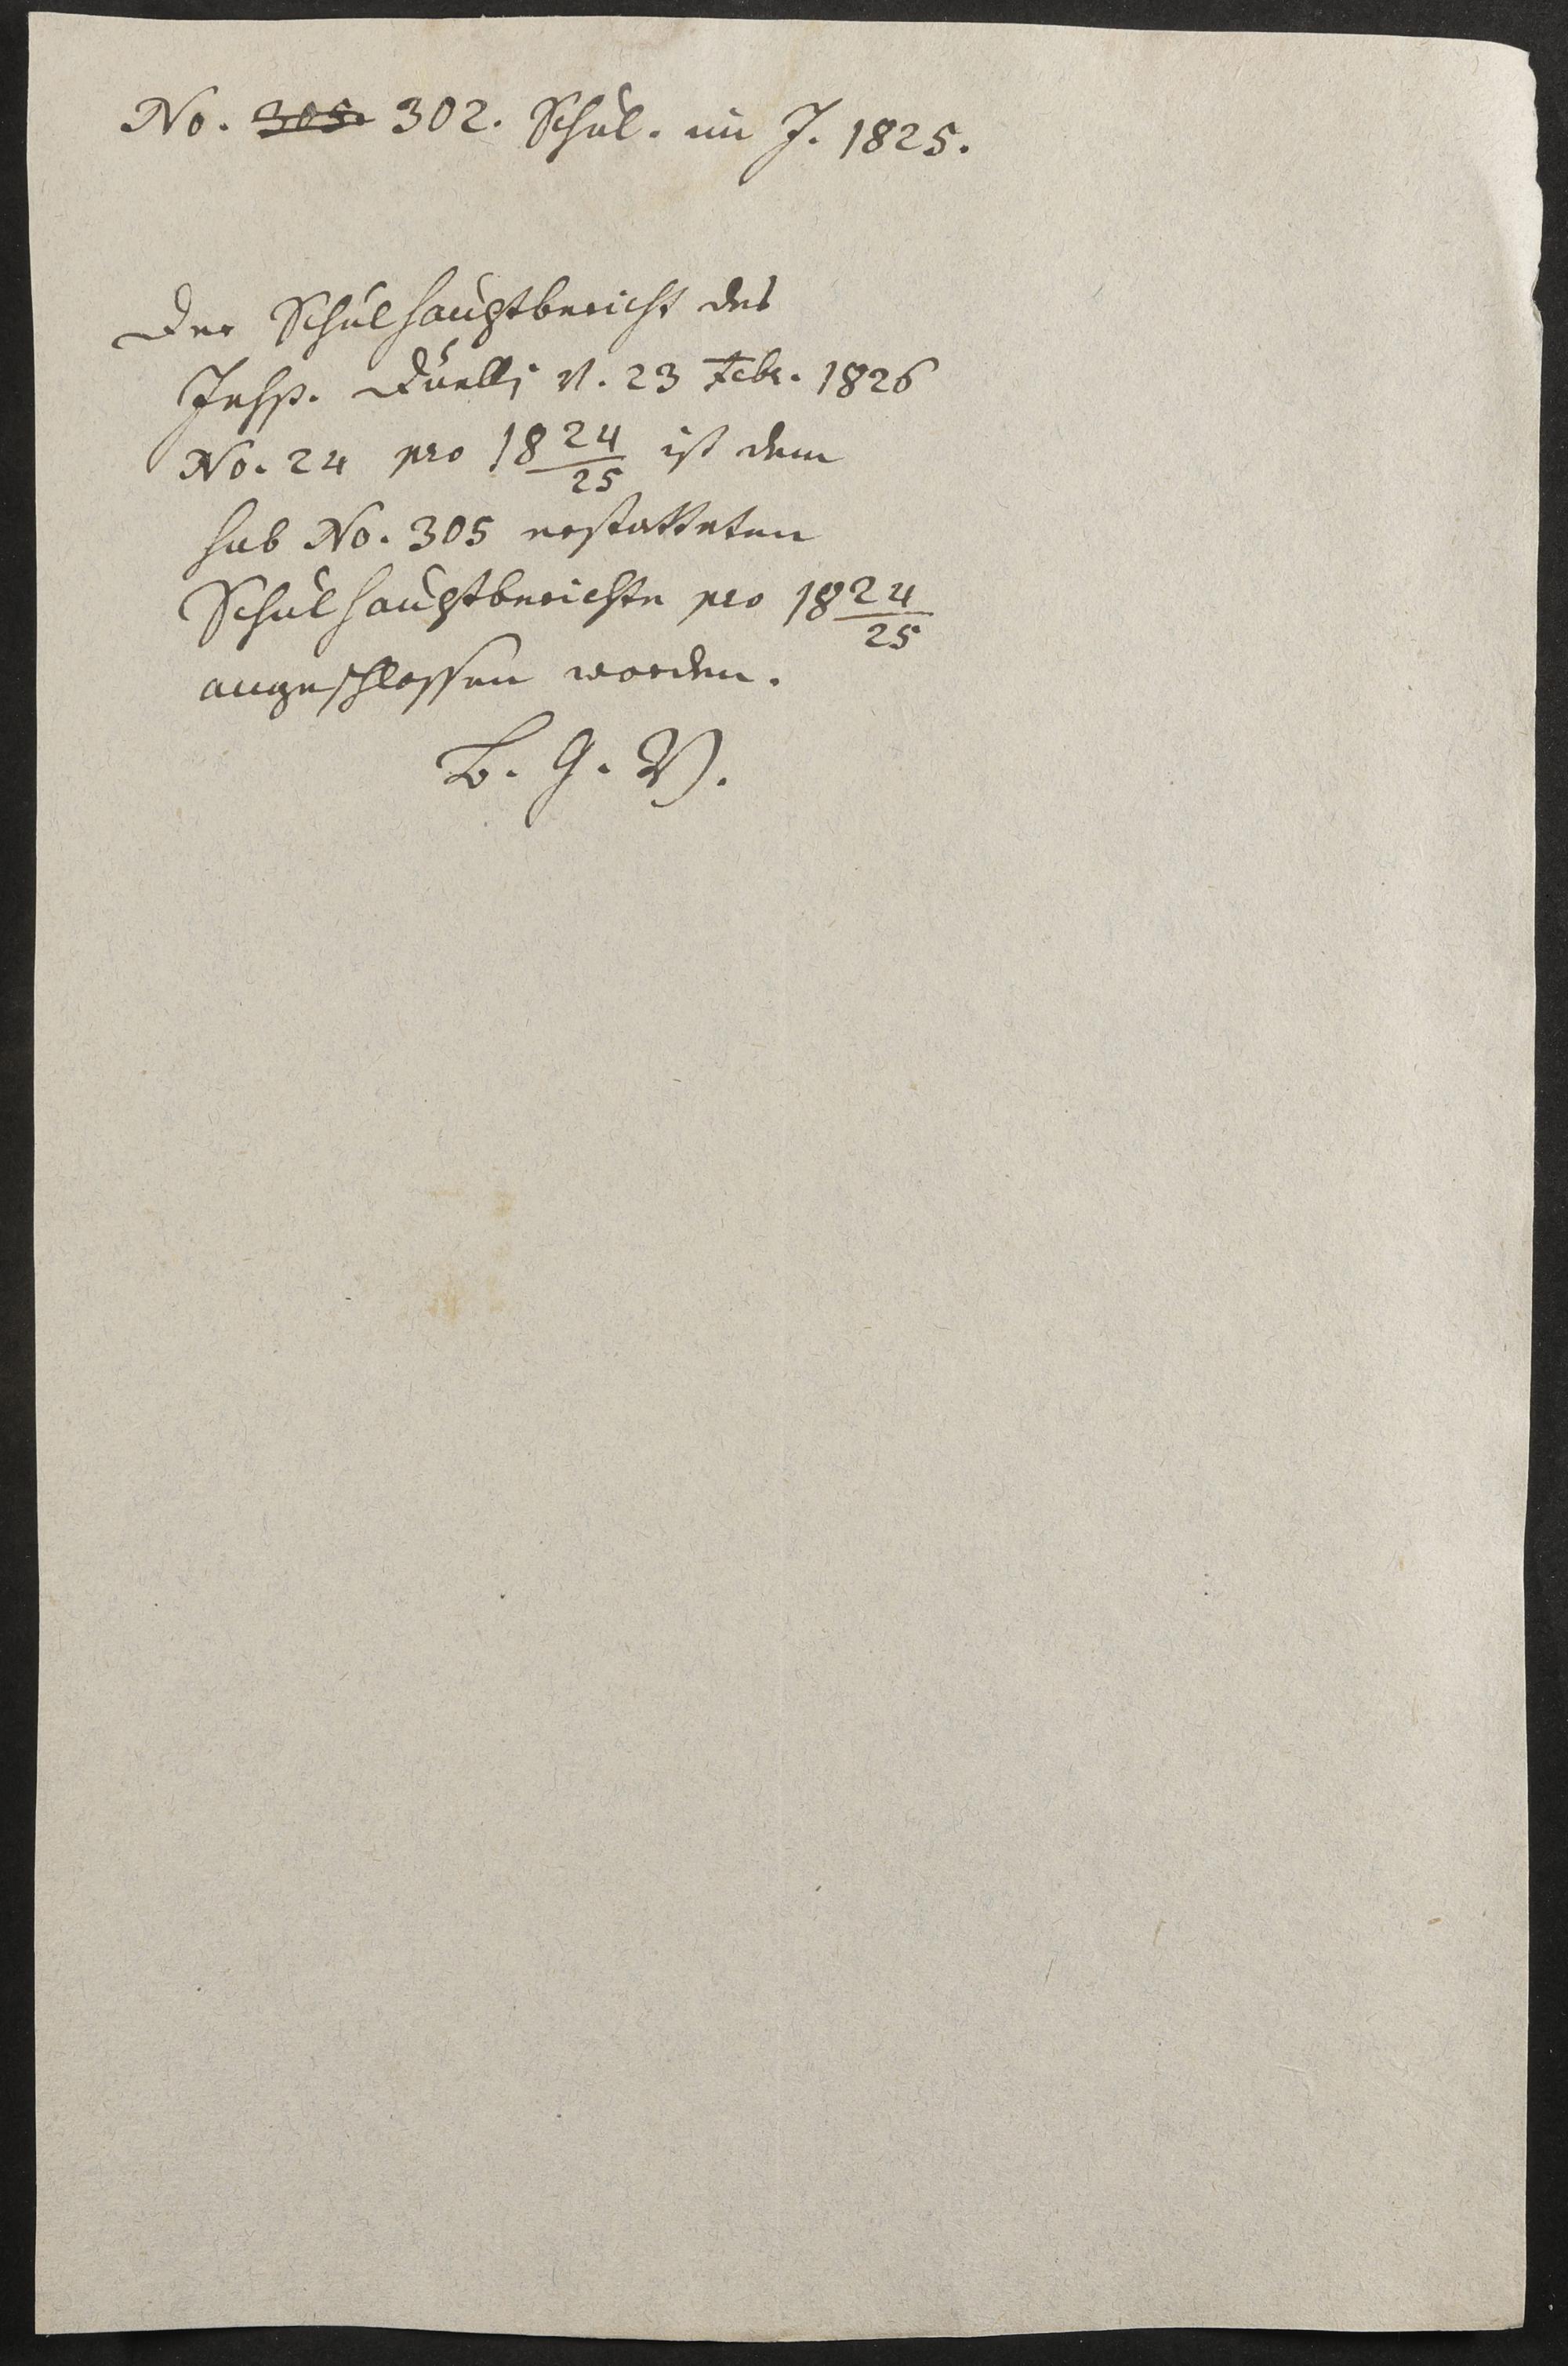 No. 305. 302. Schul. im J. 1825.
Der Schulhauptbericht des
Insp. Düelli v. 23 Febr. 1826
No. 24 pro 18 24/25 ist dem
sub No. 305 erstatteten
Schulhauptberichte pro 18 24/25
angeschlossen worden.
L. G. V.